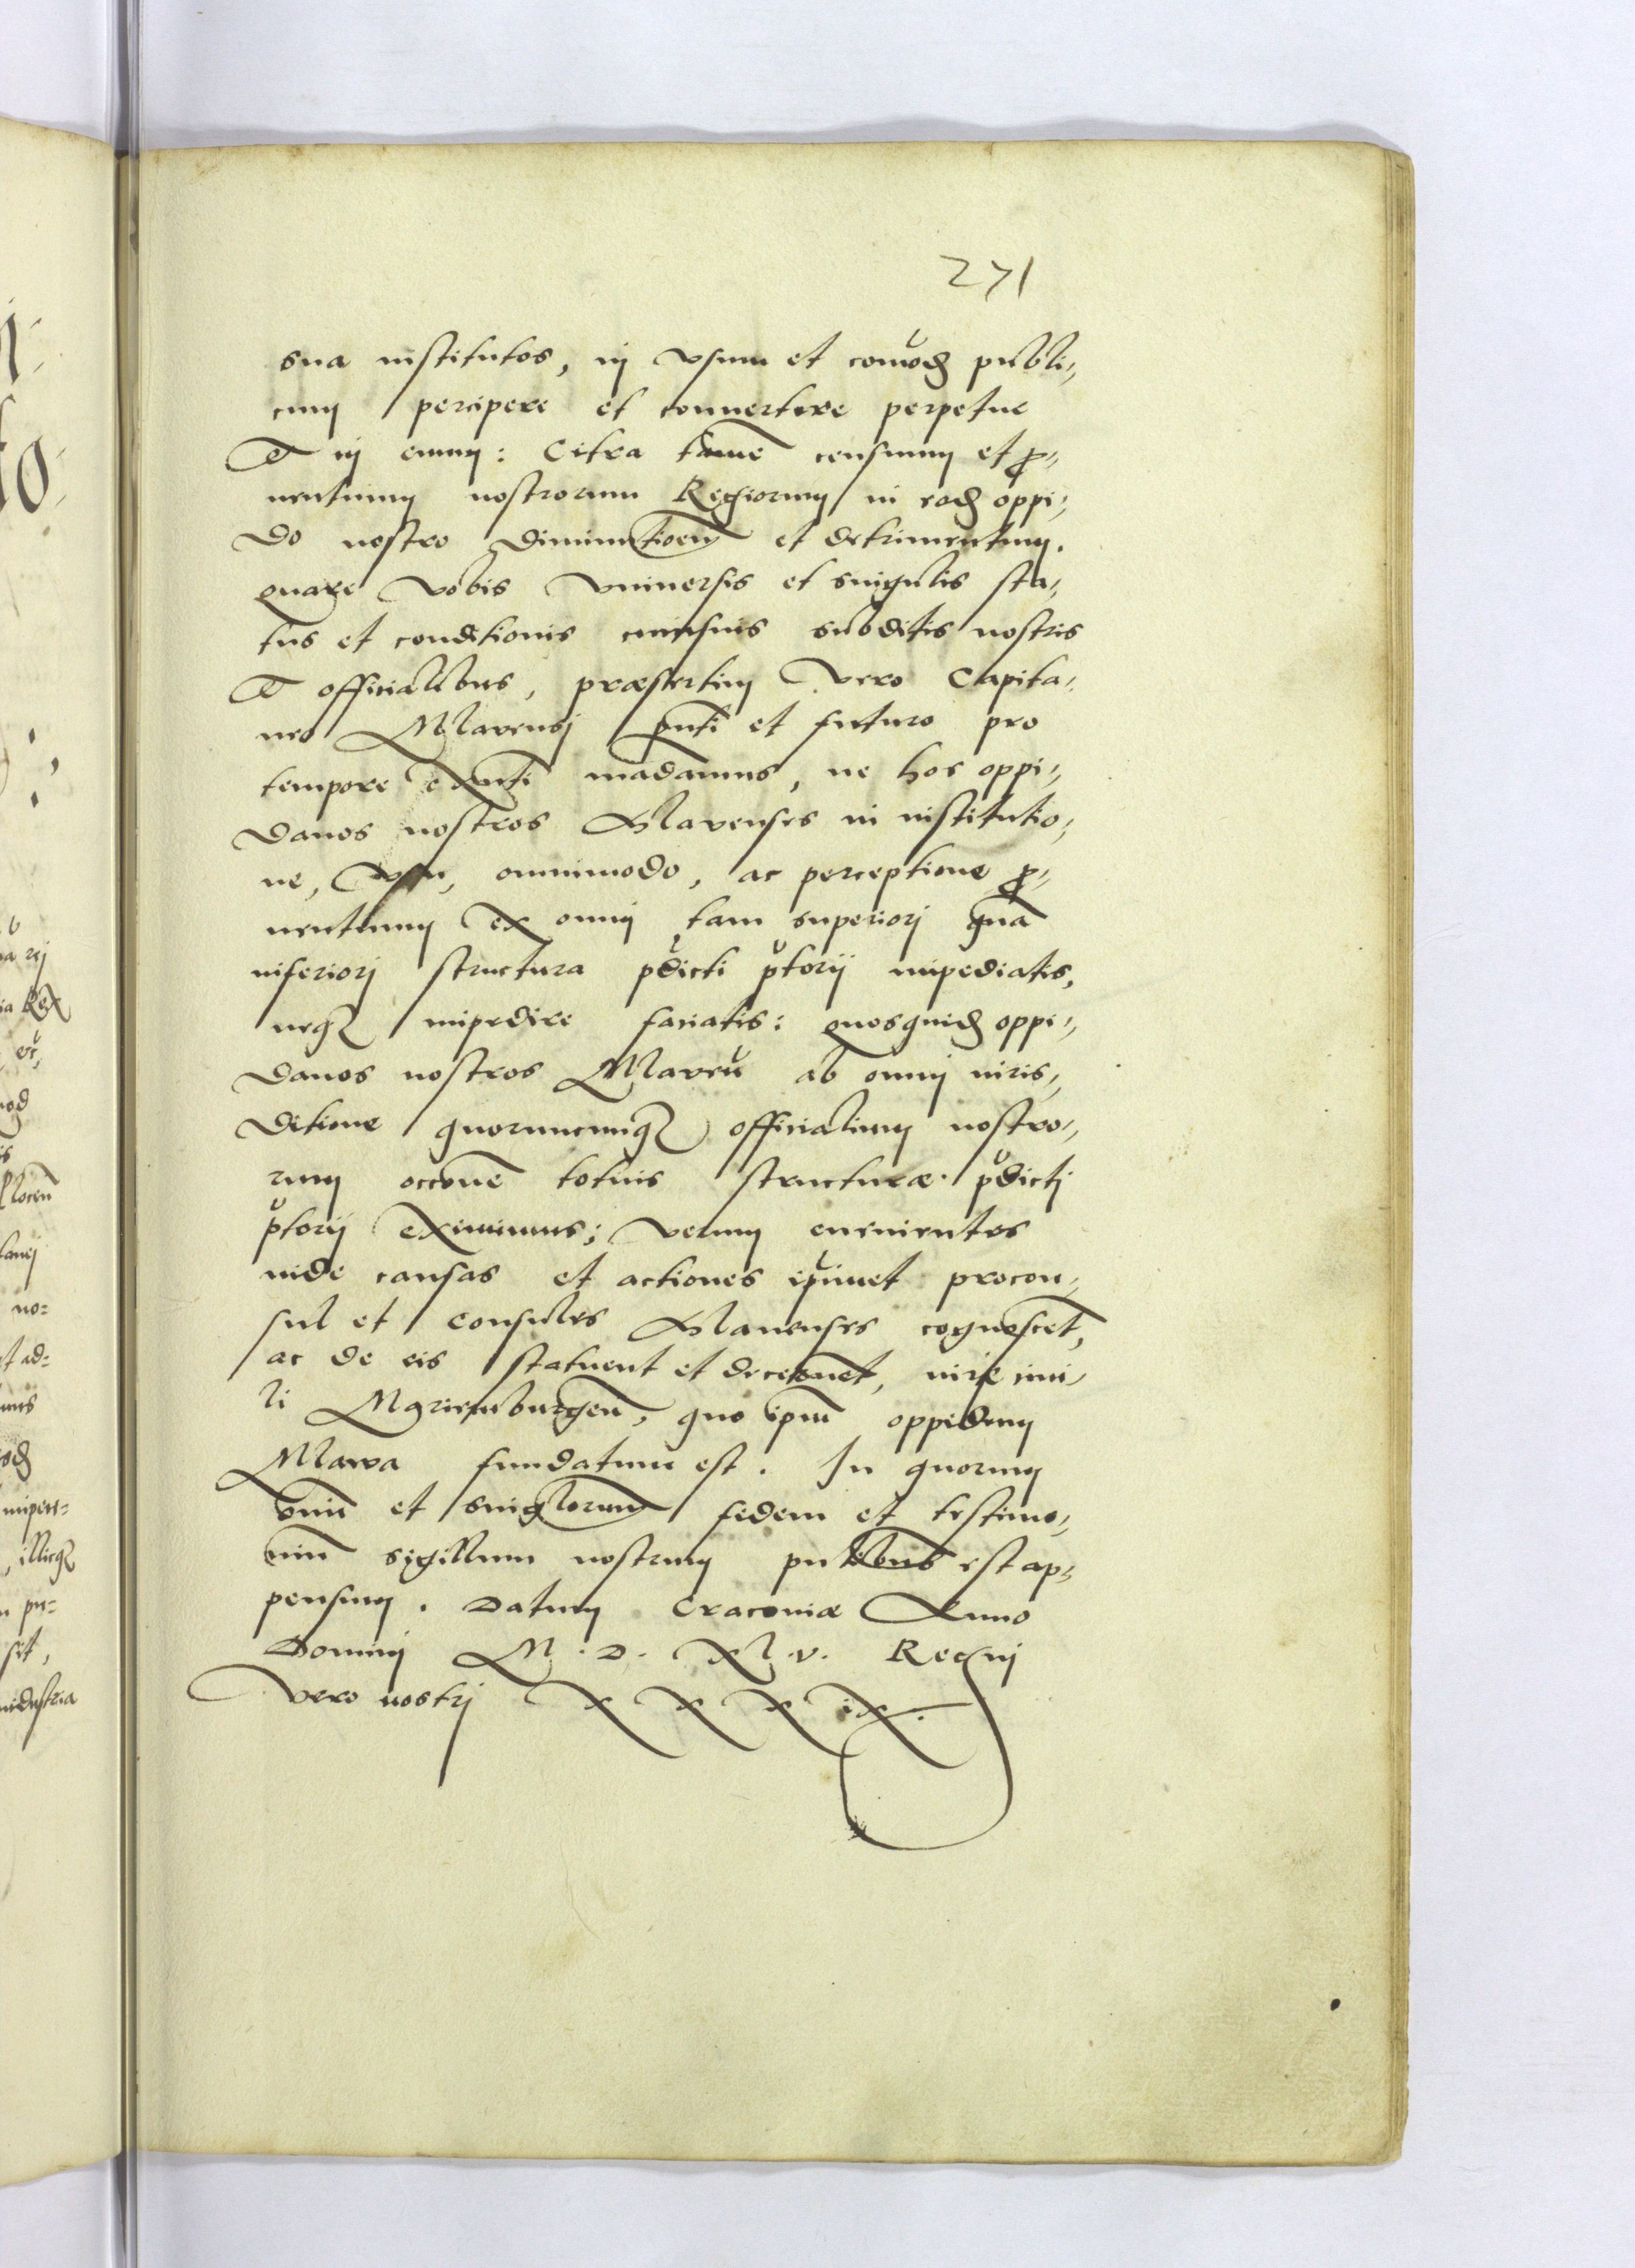 271
sua institutos, in vsum et comod publi=
cum percipere et conuertere perpetue
et in euum: Citra tame censuum et pro=
uentuum nostrorum Regiorum in eod oppi=
do nostro diminutioem et detrimentum.
quare vobis vniuersis et singulis sta=
tus et conditionis cuiusuis subditis nostris
et officialibus, præsertim vero Capita=
neo Mlavensi pnti et futuro pro
tempore exnti madamus, ne hos oppi=
danos nostros Mlavenses in institutio=
ne, vsu, omnimodo, ac perceptione pro=
uentuum ex omni tam superiori qua
inferiori structura pdicti ptorii impediatis,
neq impedire faciatis: quosquid oppi=
danos nostros Mlaven ab omni iuris=
ditione quorumcumq officialium nostro=
rum occone totius structuræ pdicti
ptorii eximimus; verum euenientes
inde causas et actiones ipimet procon=
sul et consules Mlauenses cognoscet,
ac de eis statuent et decernet, iure ciui=
li Marienburgen, quo ipm oppidum
Mlawa fundatum est. In quorum
omiu et singlorum fidem et testimo=
niu sigillum nostrum pntibus est ap=
pensum. Datum Cracoviæ Anno
Domini M. D. XL.v. Regni
vero nostri X X X ix.